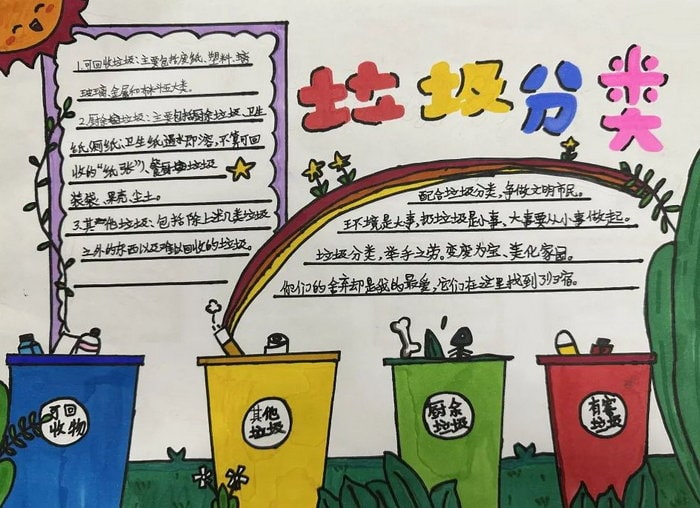 垃圾分类
1.可回收垃圾:主要包括废纸、塑料、璃
玻璃、金属和布料五大类。
2.厨余垃圾:主要包括厨余垃圾、卫生
纸、(厕纸、卫生纸遇水即溶,不算可回
收的“纸张”)、垃圾
装袋、果壳、尘土。
3.其他垃圾:包括除上述几类垃圾
之外的东西以及难以回收的垃圾。
配合垃圾分类,争做文明市民。
环境是大事,扔垃圾是小事、大事要从小事做起。
垃圾分类,举手之劳。变废为宝、美化家园。
你们的舍弃却是我的最爱,它们在这里找到了归宿。
可回
收物
其他
垃圾
厨余
垃圾
有害
垃圾